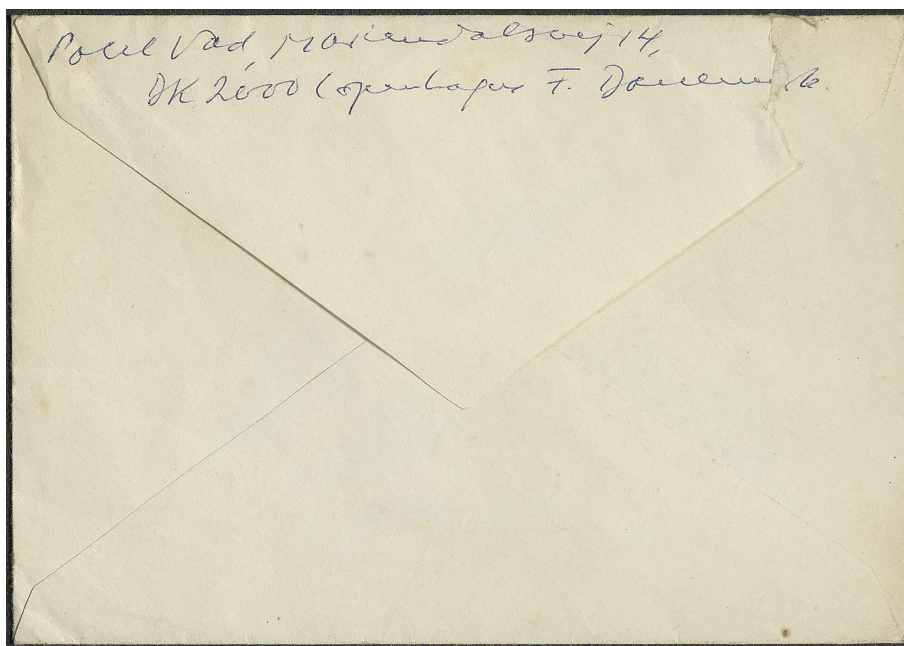 Poul Vad, Mariendalsvej 14,
DK 2000 Copenhagen F. Danemark.